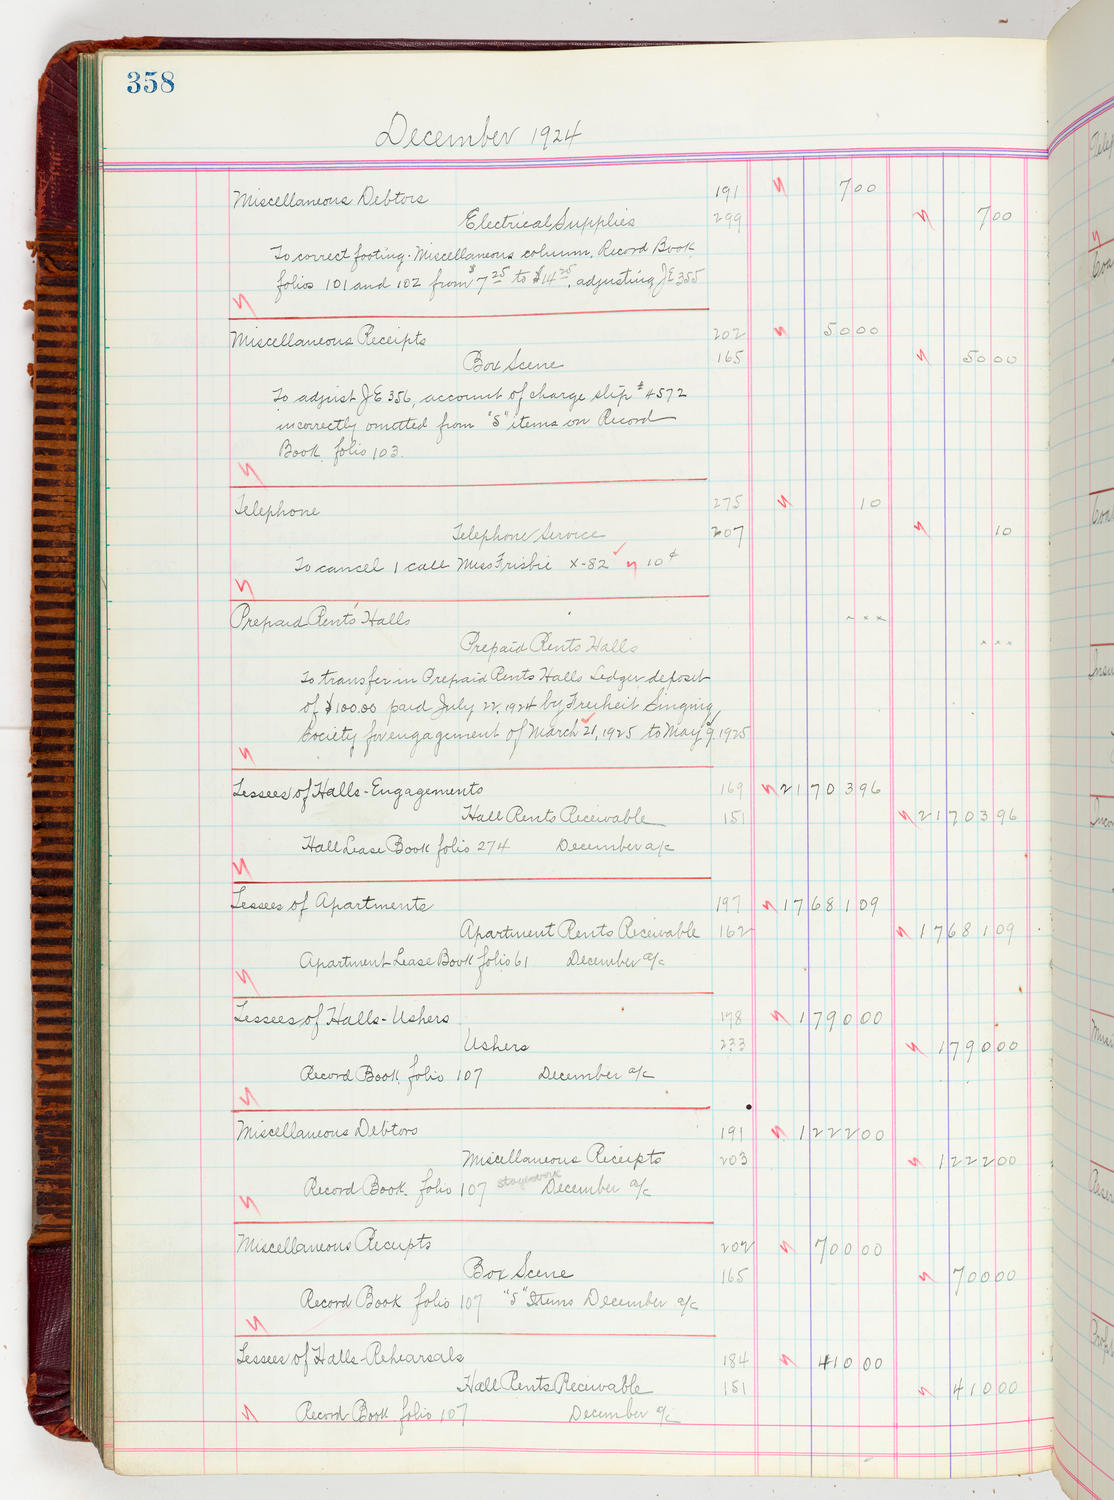 358
December 1924
Miscellaneous Debtors 191 700
Electrical Supplies 299 700
To correct footing Miscellaneous column, Record Book,
folios 101 and 102 from $7 25 to $14 25, adjusting JE 355
Miscellaneous Receipts 202 5000
Box Scene 165 5000
To adjust JE 356, account of charge slip #4572
incorrectly omitted from "S" items on Record
Book, folio 103.
Telephone 275 10
Telephone Service 207 10
To cancel 1 call Miss Frisbie X-82 10¢
Prepaid Rents Halls xxx
Prepaid Rents Halls xxx
To transfer in Prepaid Rents Halls Ledger, deposit
of $100.00 paid July 22, 1924 by Freiheit Singing
Society for engagement of March 21, 1925 to May 9, 1925
Lessees of Halls-Engagements 169 2170396
Hall Rents Receivable 151 2170396
Hall Lease Book folio 274 December a/c
Lessees of Apartments 197 1768109
Apartment Rents Receivable 162 1768109
Apartment Lease Book folio 61 December a/c
Lessees of Halls-Ushers 178 179000
Ushers 233 179000
Record Book, folio 107 December a/c
Miscellaneous Debtors 191 122200
Miscellaneous Receipts 203 122200
Record Book, folio 107 December a/c
Miscellaneous Receipts 202 70000
Box Scene 165 70000
Record Book folio 107 "S" Items December a/c
Lessees of Halls-Rehearsals 184 41000
Hall Rents Receivable 151 41000
Record Book folio 107 December a/c